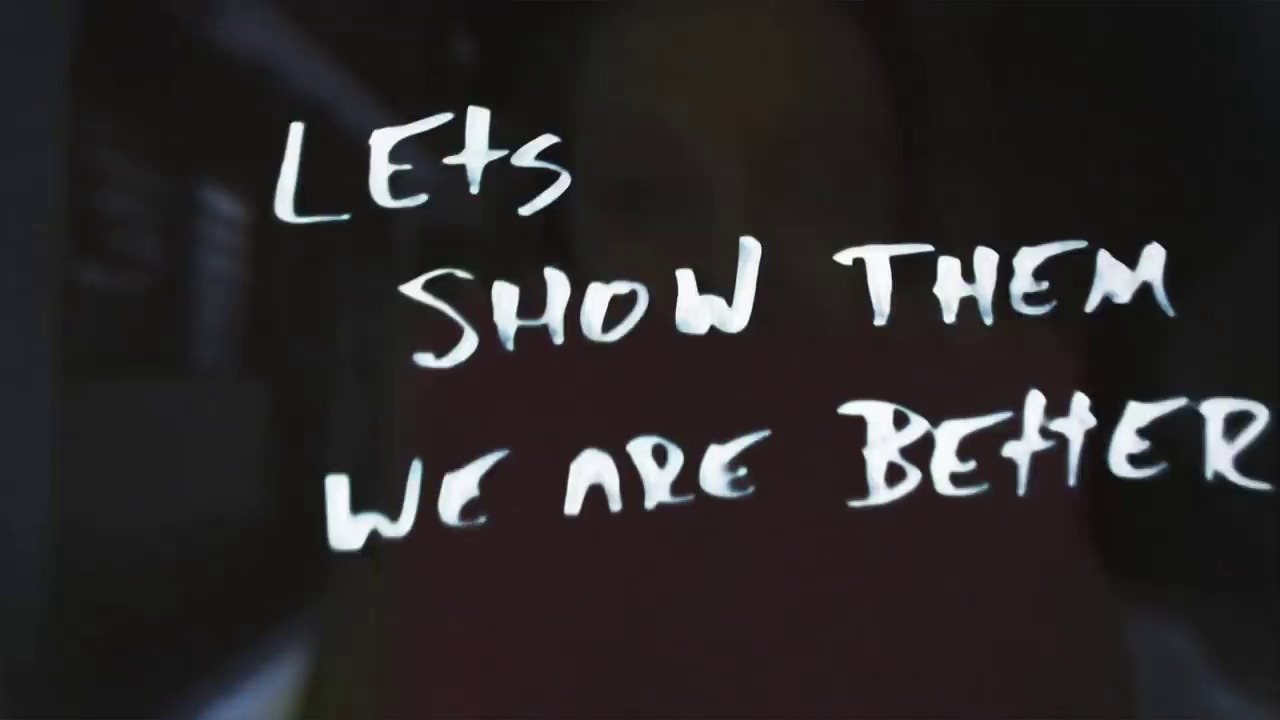 LEts
SHOW THEM
WE ARE BEttER